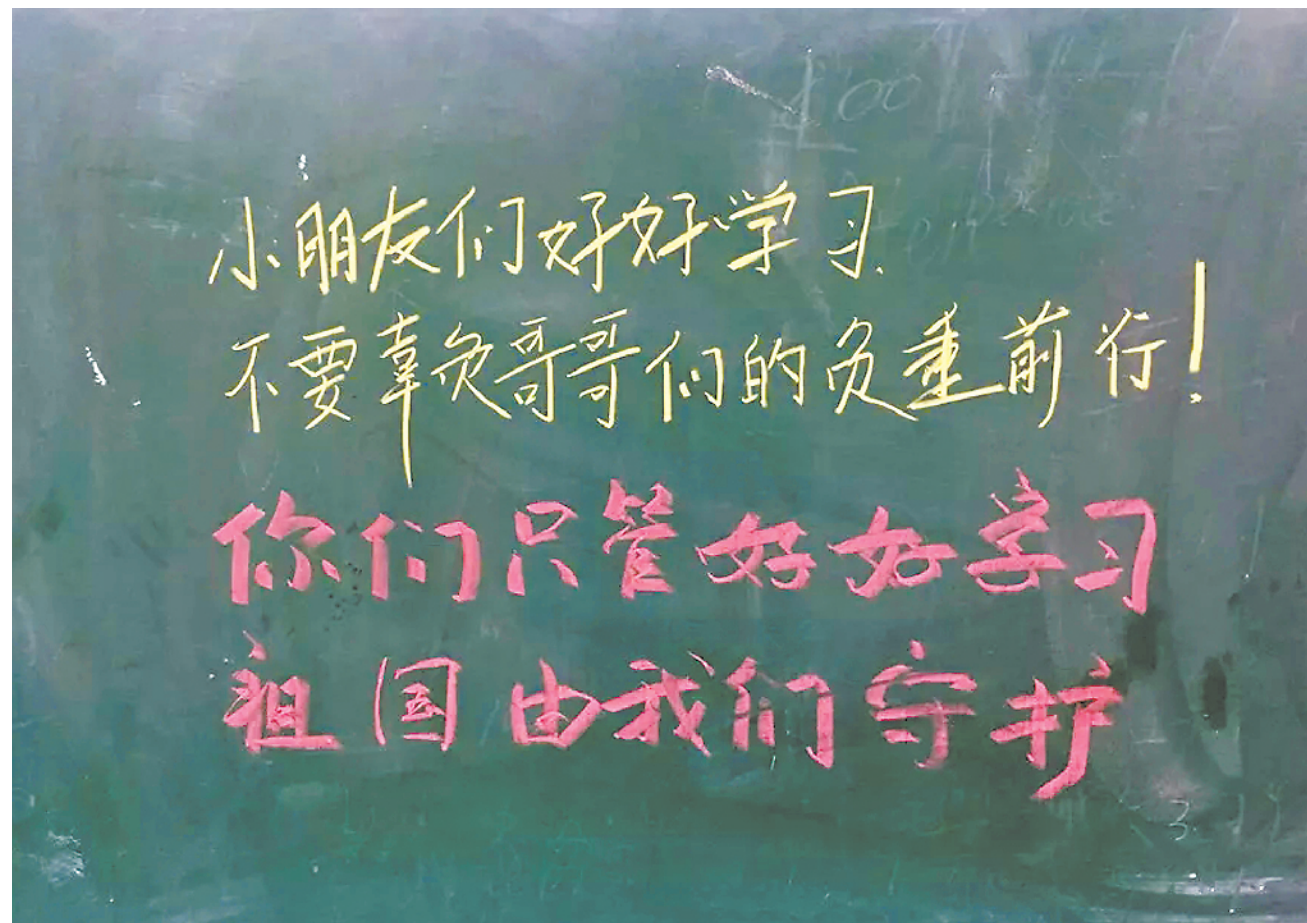 小朋友们好好学习
不要辜负哥哥们的负重前行！
你们只管好好学习
祖国由我们守护